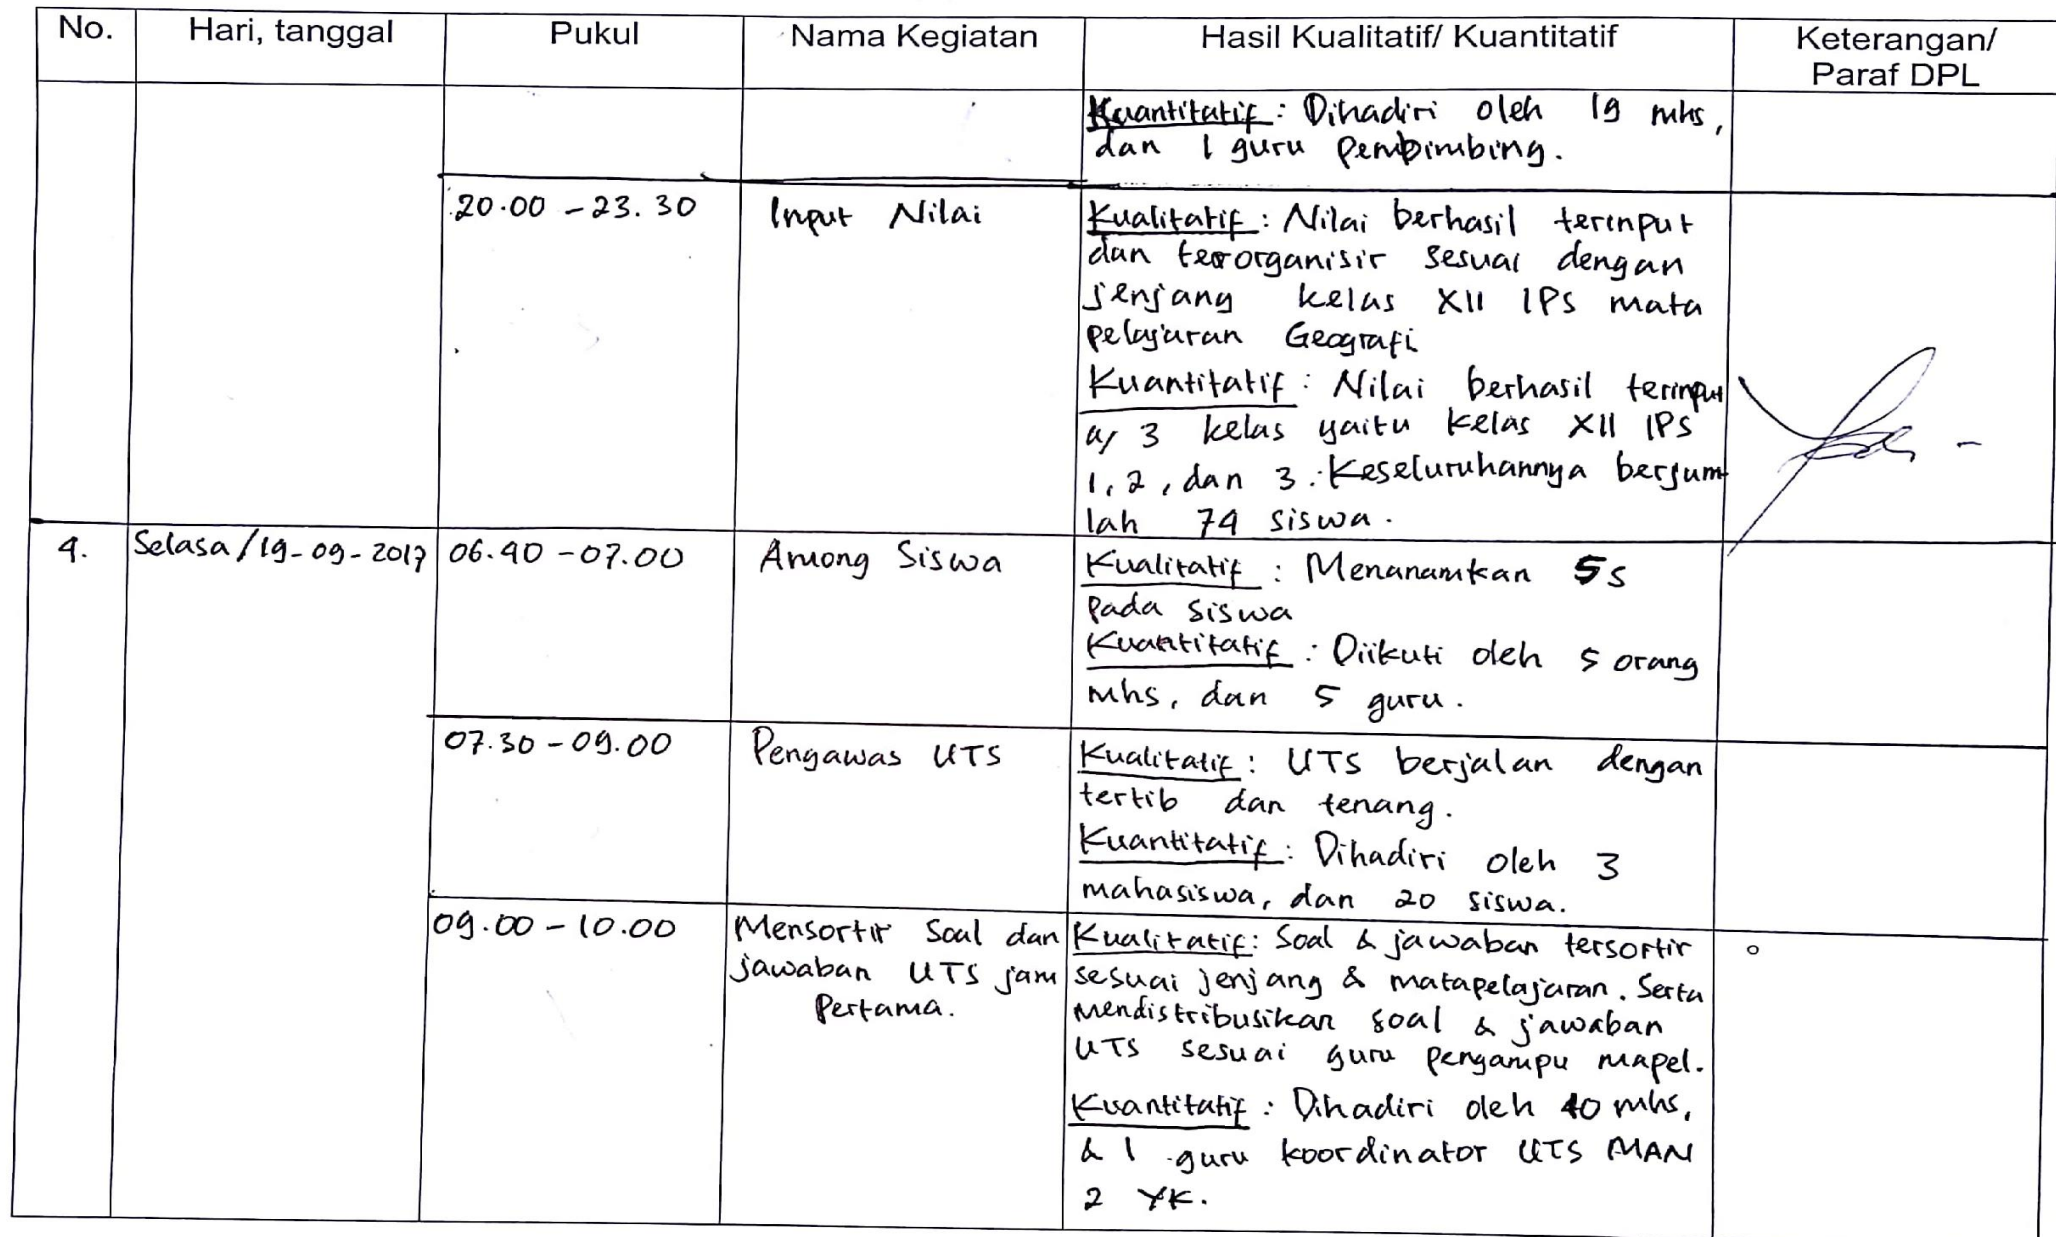 No. Hari, tanggal Pukul Nama Kegiatan Hasil Kualitatif/ Kuantitatif Keterangan/ Paraf DPL
Kuantitatif : Dihadiri oleh 19 mhs,
dan 1 guru pembimbing.
20.00 - 23.30 Input Nilai
Kualitatif : Nilai berhasil terinput
dan terorganisir sesuai dengan
jenjang kelas XII IPS mata
pelajaran Geografi
Kuantitatif : Nilai berhasil terinput
u/ 3 kelas yaitu kelas XII IPS
1, 2, dan 3. Keseluruhannya berjum
lah 74 siswa.
4. Selasa / 19-09-2017 06.40 - 07.00 Among Siswa
Kualitatif : Menanamkan 5s
pada siswa
Kuantitatif : Diikuti oleh 5 orang
mhs, dan 5 guru.
07.30 - 09.00 Pengawas UTS
Kualitatif : UTS berjalan dengan
tertib dan tenang.
Kuantitatif : Dihadiri oleh 3
mahasiswa, dan 20 siswa.
09.00 - 10.00
Mensortir Soal dan
jawaban UTS jam
Pertama.
Kualitatif : Soal & jawaban tersortir
sesuai jenjang & matapelajaran. Serta
mendistribusikan soal & jawaban
UTS sesuai guru pengampu mapel.
Kuantitatif : Dihadiri oleh 40 mhs,
& 1 guru koordinator UTS MAN
2 YK.